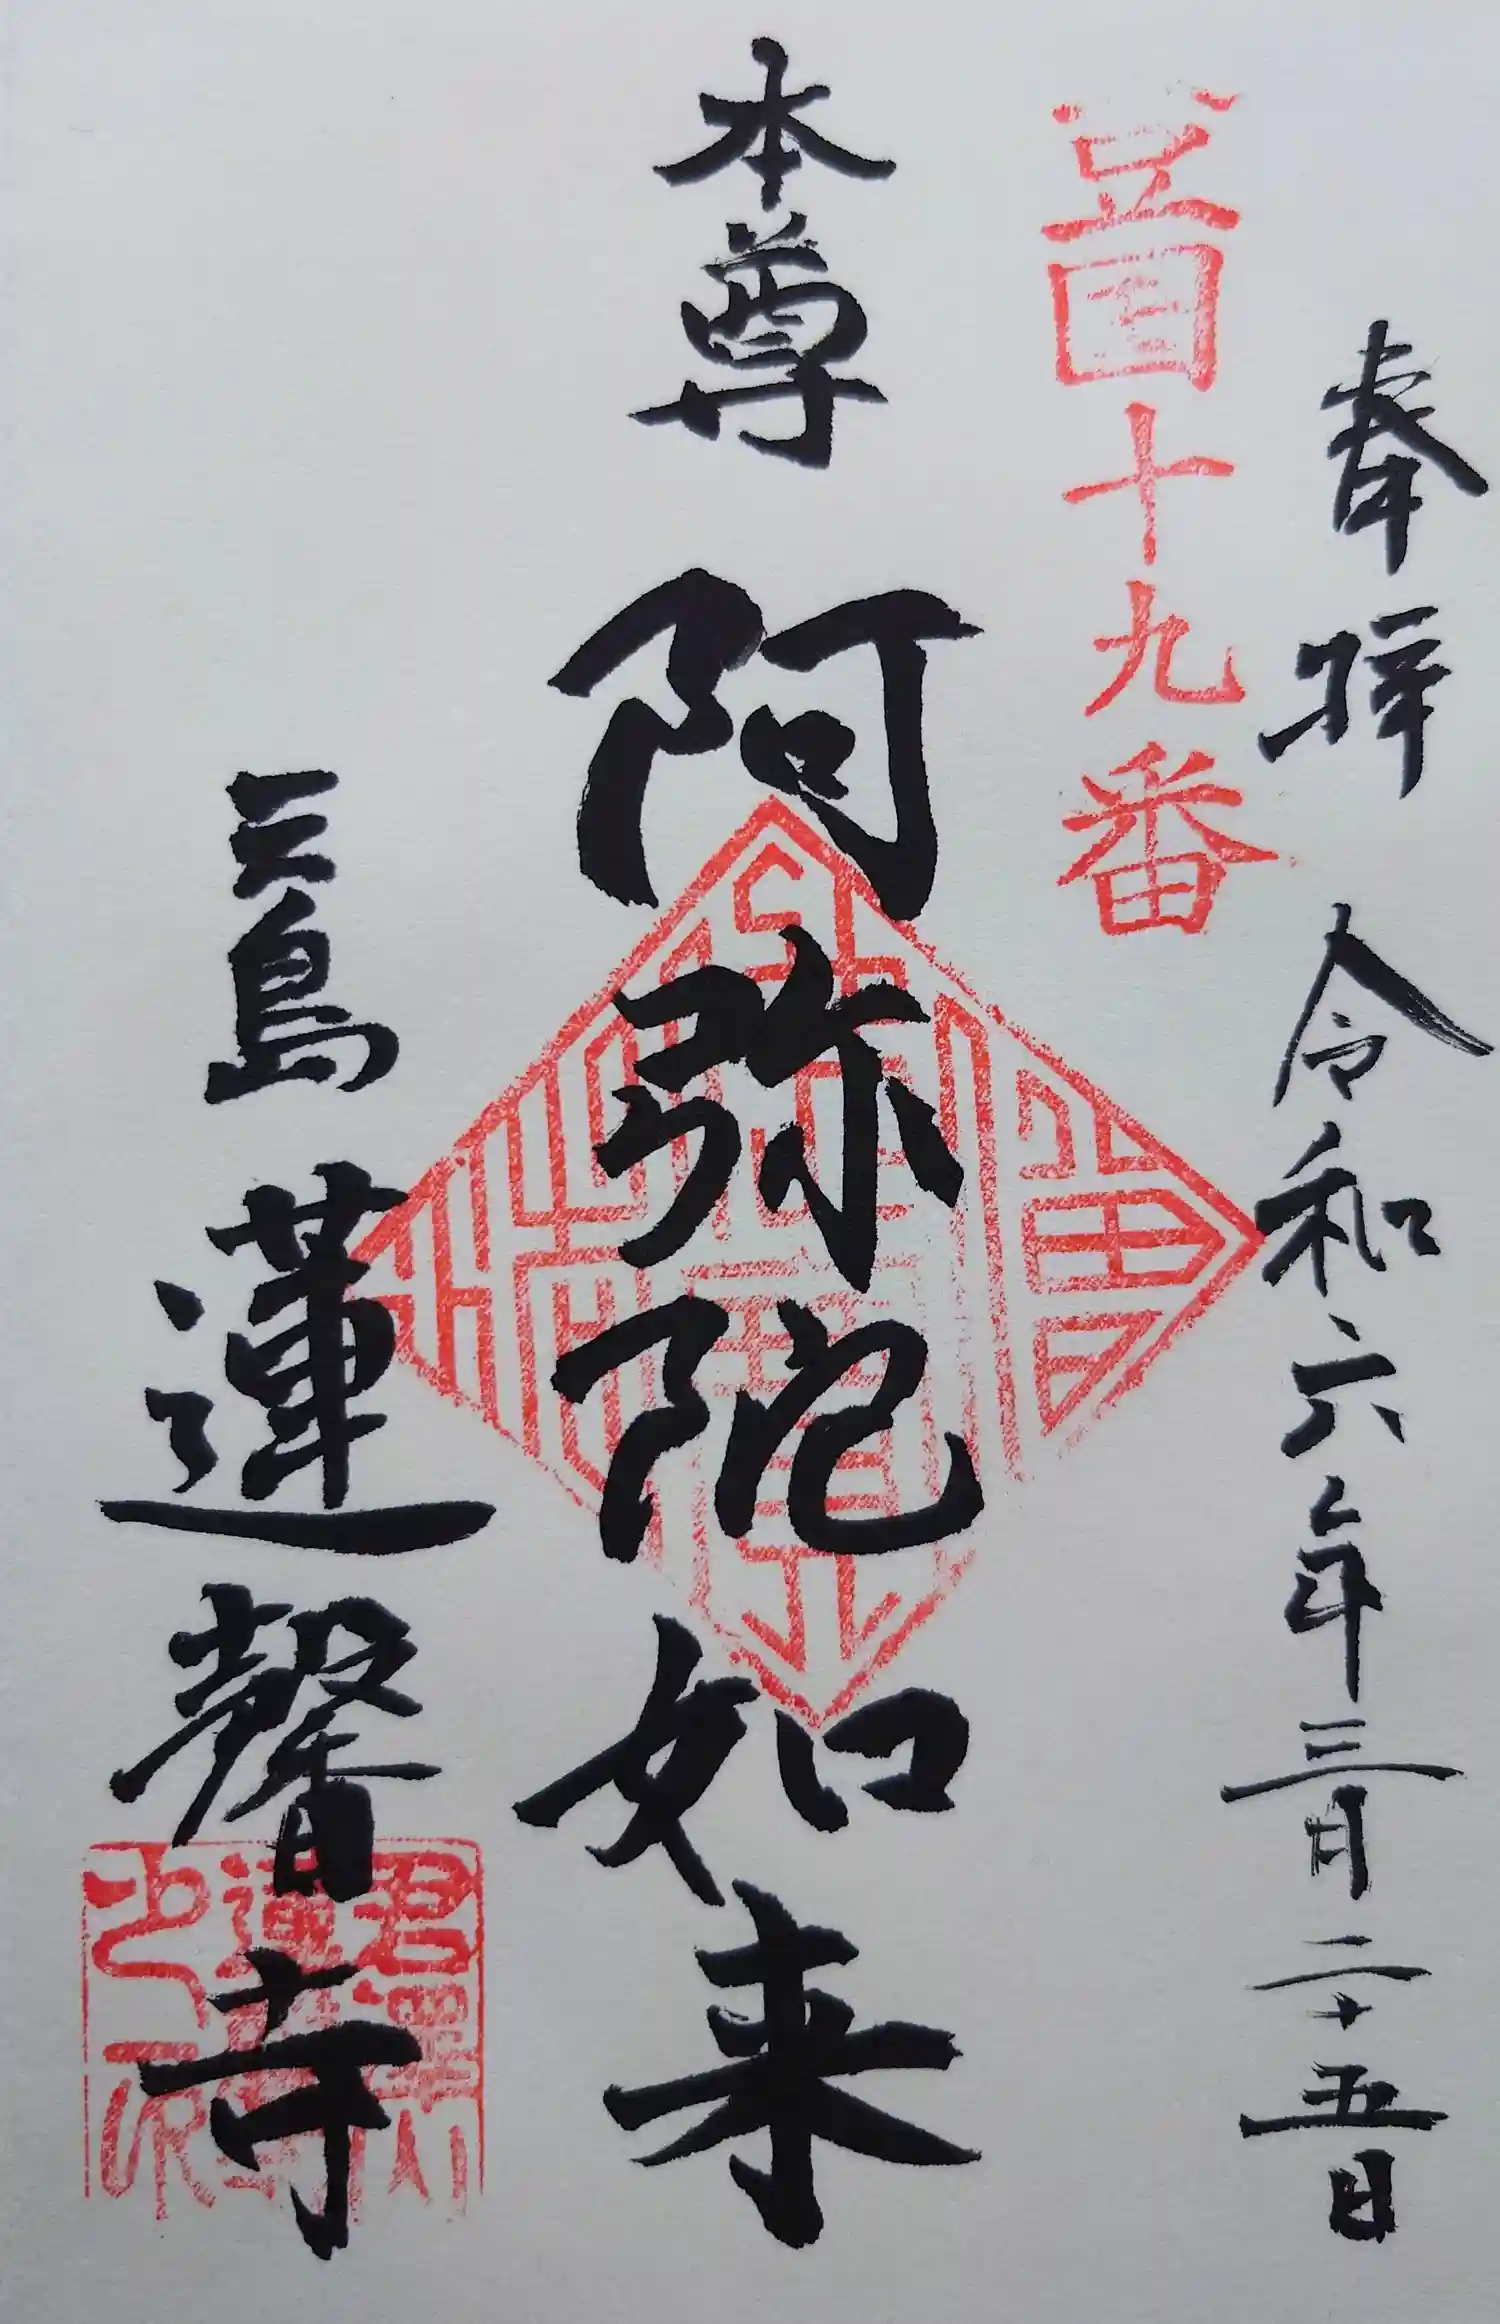 奉拝 令和六年三月二十五日
十九番
本尊 阿弥陀如来
三島 蓮馨寺